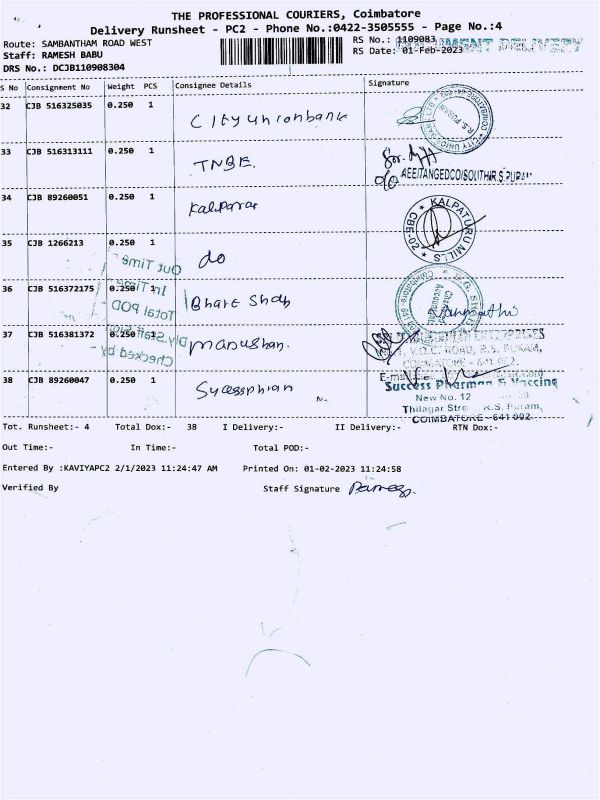 THE PROFESSIONAL COURIERS, Coimbatore
Delivery Runsheet - PC2 - Phone No.:0422-3505555 - Page No.:4
Route: SAMBANTHAM ROAD WEST
Staff: RAMESH BABU
DRS No.: DCJB110908304
RS No.: 1109083
RS Date: 01-Feb-2023
DELIVERY
S No Consignment No Weight PCS Consignee Details Signature
32 CJB 516325035 0.250 1 City unionbank
R.S. PURAM
33 CJB 516313111 0.250 1 TNBE.
AEE/TANGEDCO/SOUTH/R.S.PURAM
34 CJB 89260051 0.250 1
KALPATURU MILLS
CBE-20
35 CJB 1266213 0.250 1 do
Out Time
36 CJB 516372175 0.250 Bharat Shah
In Time
Total POD
Chartered Accountants
37 CJB 516381372 0.250
Dly.Staff Sign
Checked by
V.O.C. ROAD, R.S. PURAM,
COIMBATORE - 641 002.
38 CJB 89260047 0.250 1
Success Pharma & Vaccine
New No. 12
Thilagar Stre R.S. Puram,
COIMBATORE - 641 002
Tot. Runsheet:- 4 Total Dox:- 38 I Delivery:- II Delivery:- RTN Dox:-
Out Time:- In Time:- Total POD:-
Entered By :KAVIYAPC2 2/1/2023 11:24:47 AM Printed On: 01-02-2023 11:24:58
Verified By Staff Signature